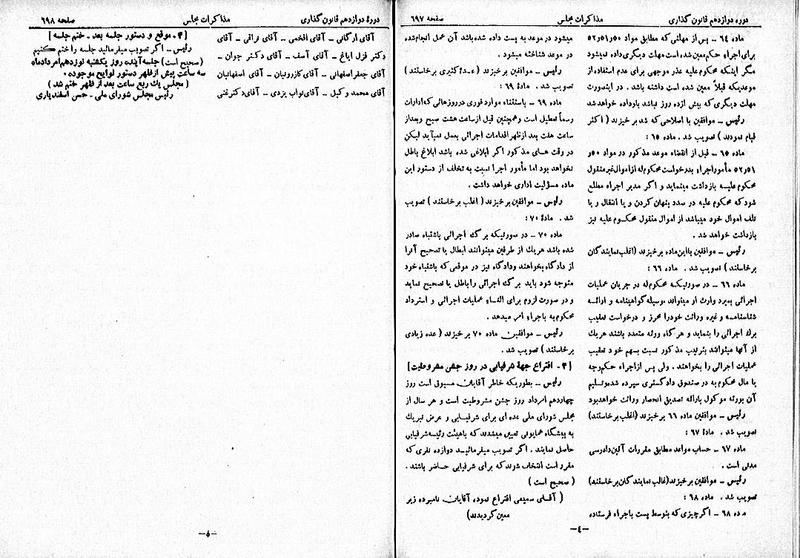 دورهٔ دوازدهم قانون گذاری
مذاکرات مجلس
صفحه ۶۹۷
ماده ۶۴ ـ پس از مهلتی که مطابق مواد ۵۰ و ۵۱ و ۵۲
برای اجراء حکم معین شده است مهلت دیگری داده نمیشود
مگر اینکه محکوم علیه عذر موجهی برای عدم استفاده از
موعدیکه قبلاً معین شده است داشته باشد . در اینصورت
مهلت دیگری که بیش از ده روز نباشد باو داده خواهد شد
رئیس ـ موافقین با اصلاحی که شد برخیزند ( اکثر
قیام نمودند ) تصویب شد . ماده ۶۵ :
ماده ۶۵ ـ قبل از انقضاء موعد مذکور در مواد ۵۰ و
۵۱ و ۵۲ مأمور اجراء بدرخواست محکوم له از اموال غیر منقول
محکوم علیه بازداشت مینماید و اگر مدیر اجراء مطلع
شود که محکوم علیه در صدد پنهان کردن و یا انتقال و یا
تلف اموال خود میباشد از اموال منقول محکوم علیه نیز
بازداشت خواهد شد .
رئیس ـ موافقین با این ماده برخیزند ( اغلب نمایندگان
برخاستند ) تصویب شد . ماده ۶۶ :
ماده ۶۶ ـ در صورتیکه محکوم له در جریان عملیات
اجرائی بمیرد وارث او میتواند بوسیله گواهینامه و ارائه
شناسنامه و غیره وراثت خود را محرز و درخواست تعقیب
برگ اجرائی را بنماید و هر گاه ورثه متعدد باشند هر یک
از آنها میتواند بترتیب مذکور نسبت بسهم خود تعقیب
عملیات اجرائی را بخواهند . ولی پس از اجراء حکم وجه
یا مال محکوم به در صندوق دادگستری سپرده شده و تسلیم
آن بورثه موکول بارائه تصدیق انحصار وراثت خواهد بود
رئیس ـ موافقین ماده ۶۶ برخیزند ( اغلب برخاستند )
تصویب شد . ماده ۶۷ :
ماده ۶۷ ـ حساب مواعد مطابق مقررات آئین دادرسی
مدنی است .
رئیس ـ موافقین برخیزند ( غالب نمایندگان برخاستند )
تصویب شد . ماده ۶۸ :
ماده ۶۸ ـ اگر چیزی که بتوسط پست باجراء فرستاده
میشود در موعد به پست داده شده باشد آن عمل انجام شده
در موعد شناخته میشود .
رئیس ـ موافقین برخیزند ( عدهٔ کثیری برخاستند )
تصویب شد . ماده ۶۹ :
ماده ۶۹ ـ باستثناء موارد فوری در روزهائی که ادارات
رسماً تعطیل است و همچنین قبل از ساعت هشت صبح و بعد از
ساعت هفت بعد از ظهر اقدامات اجرائی بعمل نمیآید لیکن
در وقت های مذکور اگر ابلاغی شده باشد ابلاغ باطل
نخواهد بود اما مأمور اجرا نسبت به تخلف از دستور این
ماده مسئولیت اداری خواهد داشت .
رئیس ـ موافقین برخیزند ( اغلب برخاستند ) تصویب
شد . مادهٔ ۷۰ :
ماده ۷۰ ـ در صورتیکه برگ اجرائی باشتباه صادر
شده باشد هر یک از طرفین میتوانند ابطال یا تصحیح آنرا
از دادگاه بخواهند و دادگاه نیز در موقعی که باشتباه خود
متوجه شود باید برگ اجرائی را باطل یا تصحیح نماید
و در صورت لزوم برای الغاء عملیات اجرائی و استرداد
محکوم به باجراء امر میدهد .
رئیس ـ موافقین ماده ۷۰ برخیزند ( عده زیادی
برخاستند ) تصویب شد .
[ ۳ ـ اقتراع جهة شرفیابی در روز جشن مشروطیت ]
رئیس ـ بطوریکه خاطر آقایان مسبوق است روز
چهاردهم امرداد روز جشن مشروطیت است و هر سال از
مجلس شورای ملی عده ای برای شرفیابی و عرض تبریک
به پیشگاه همایونی تعیین میشدند که با هیئت رئیسه شرفیابی
حاصل نمایند . اگر تصویب میفرمائید دوازده نفری که
مقرر است انتخاب شوند که برای شرفیابی حاضر باشند .
( صحیح است )
( آقای سمیعی اقتراع نموده آقایان نامبرده زیر
معین گردیدند )
ـ ٤ ـ
دورهٔ دوازدهم قانون گذاری
مذاکرات مجلس
صفحه ۶۹۸
آقای ارگانی ـ آقای افخمی ـ آقای نراقی ـ آقای
دکتر قزل ایاغ ـ آقای آصف ـ آقای دکتر جوان ـ
آقای جعفر اصفهانی ـ آقای کازرونیان ـ آقای اصفهانیان
آقای محمد وکیل ـ آقای نواب یزدی ـ آقای دکتر غنی
[ ۴ ـ موقع و دستور جلسه بعد ـ ختم جلسه ]
رئیس ـ اگر تصویب میفرمائید جلسه را ختم کنیم
( صحیح است ) جلسه آینده روز یکشنبه نوزدهم امرداد ماه
سه ساعت پیش از ظهر دستور لوایح موجوده .
( مجلس یک ربع ساعت بعد از ظهر ختم شد )
رئیس مجلس شورای ملی ـ حسن اسفندیاری
ـ ٥ ـ